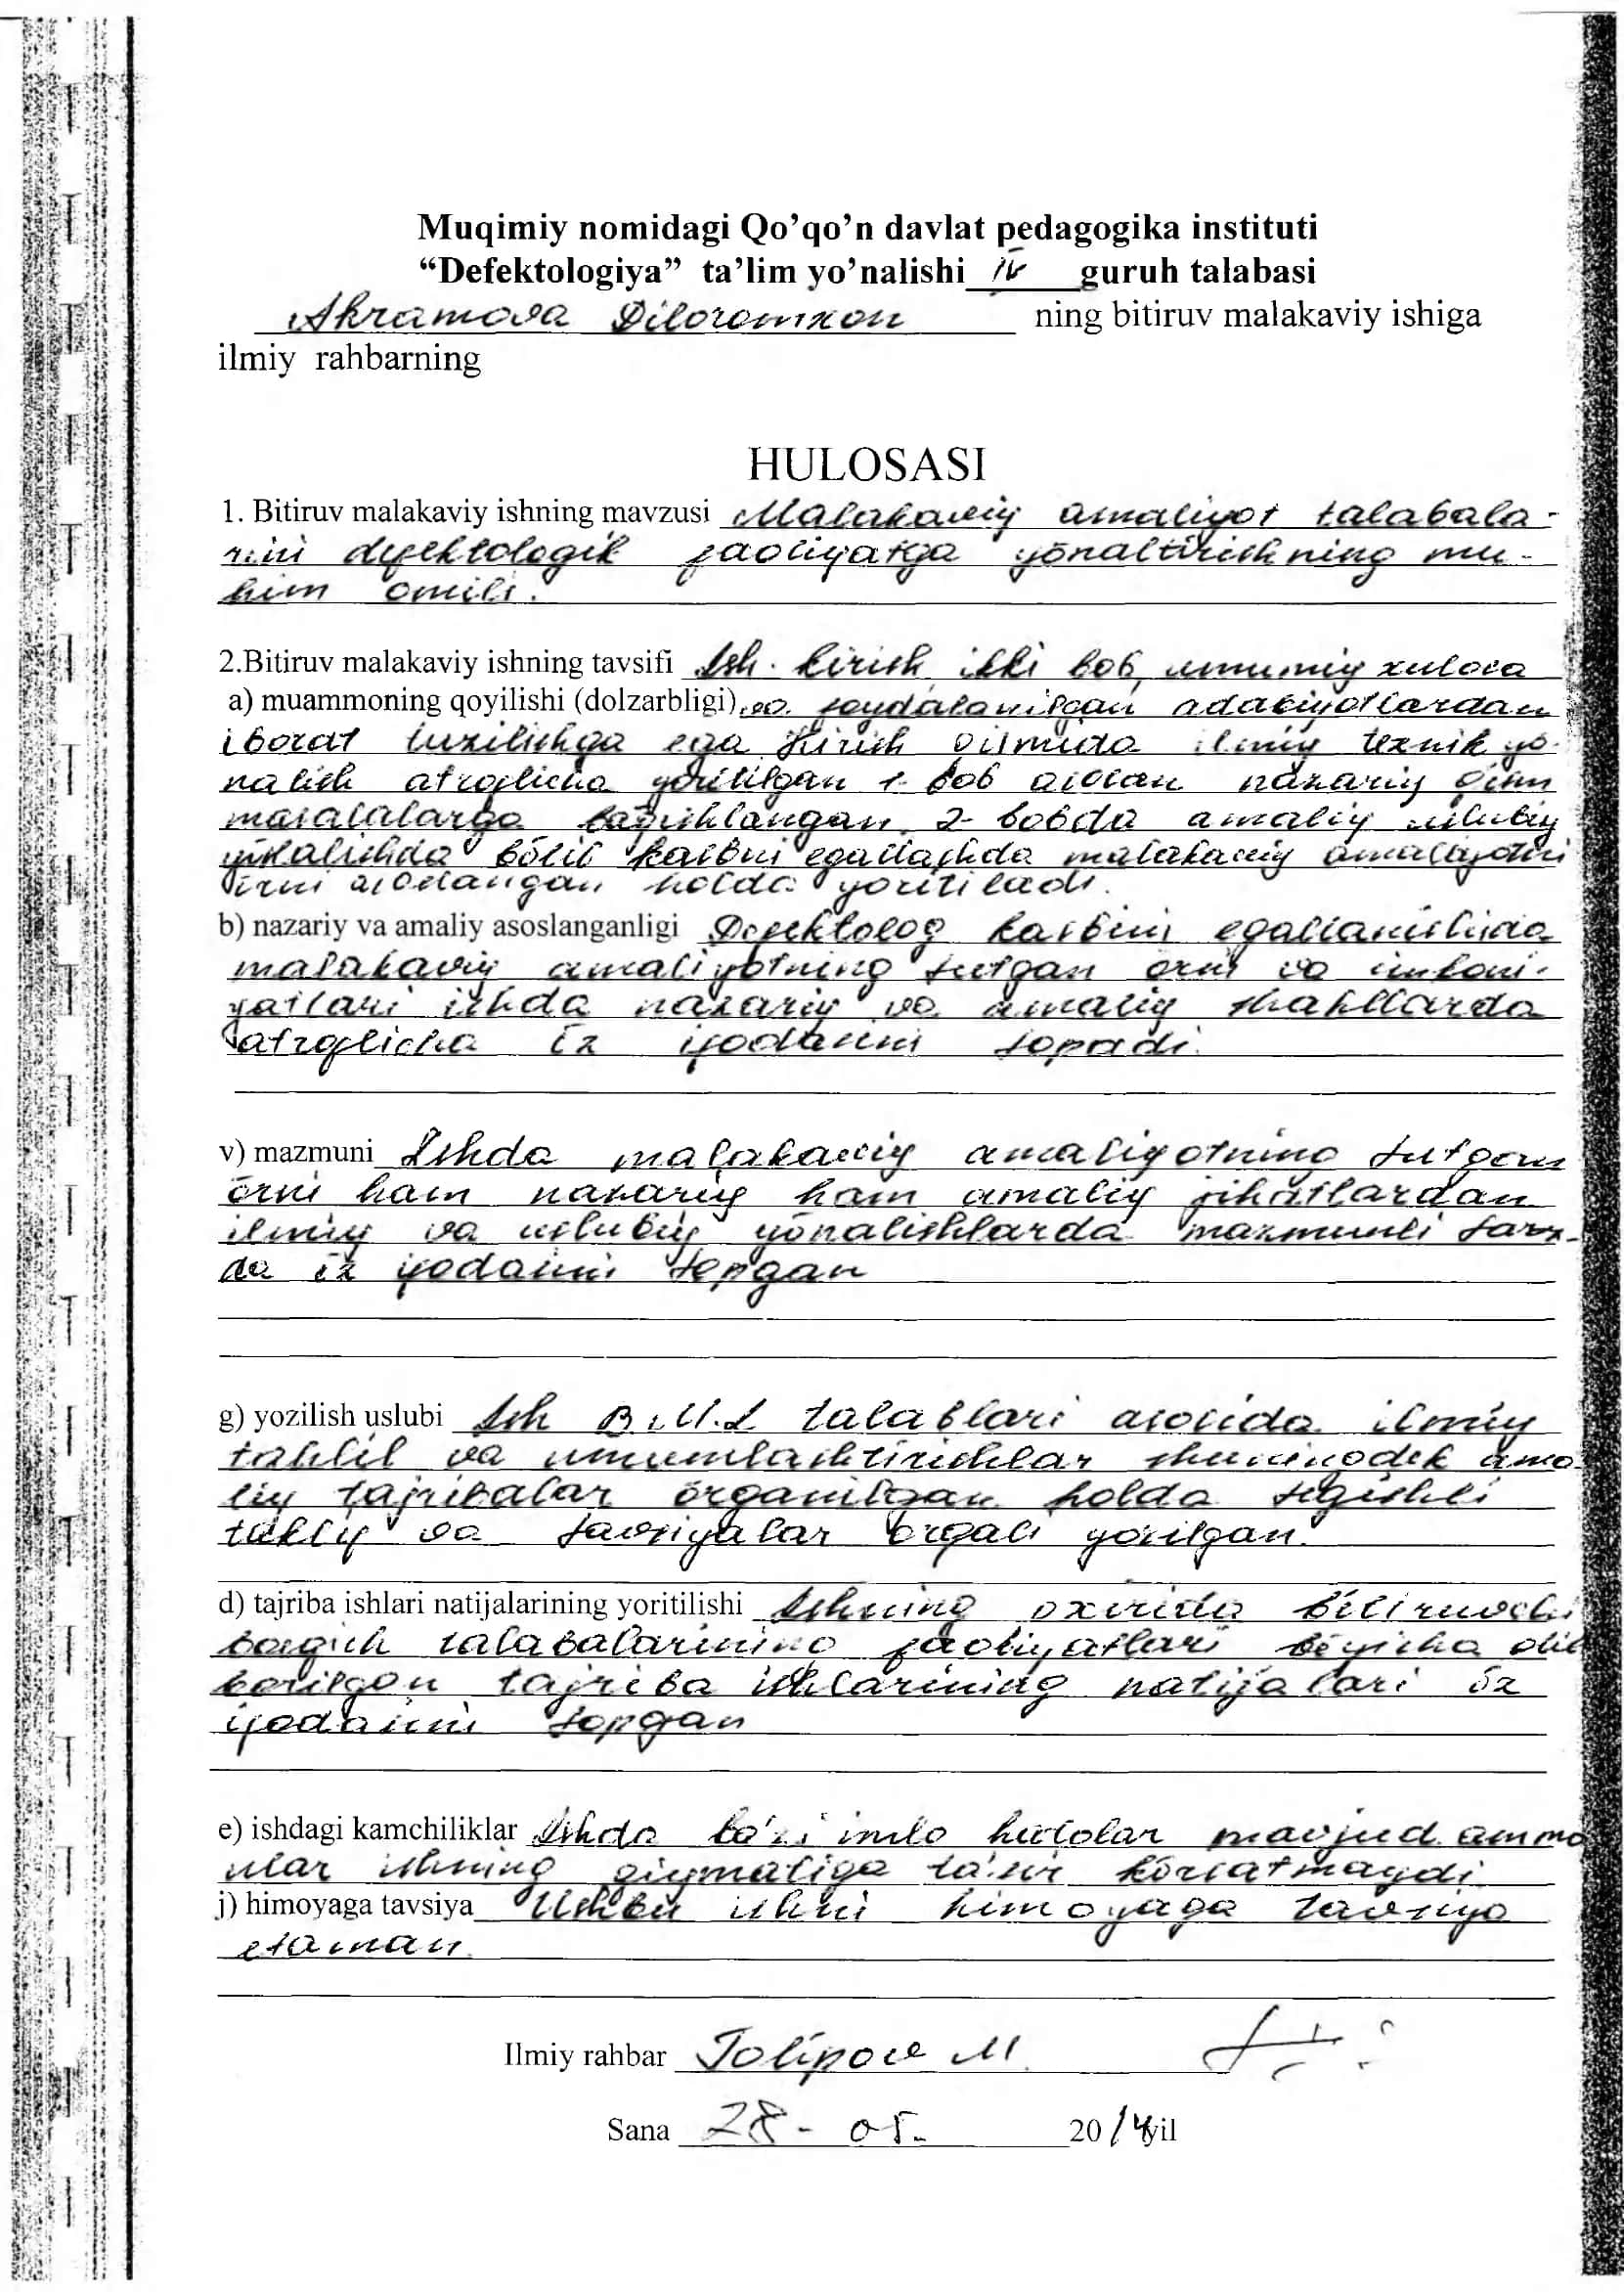 Muqimiy nomidagi Qo’qo’n davlat pedagogika instituti
“Defektologiya” ta’lim yo’nalishi IV guruh talabasi
Akramova Diloromxon ning bitiruv malakaviy ishiga
ilmiy rahbarning
HULOSASI
1. Bitiruv malakaviy ishning mavzusi Malakaviy amaliyot talabala-
rini defektologik faoliyatga yōnaltirishning mu-
him omili.
2.Bitiruv malakaviy ishning tavsifi Ish. kirish, ikki bob, umumiy xulosa
a) muammoning qoyilishi (dolzarbligi) va foydalanilgan adabiyotlardan
iborat tuzilishga ega. Kirish qismida ilmiy texnik yō-
nalish atroflicha yoritilgan 1-bob asosan nazariy
masalalarga bag̃ishlangan. 2-bobda amaliy uslubiy
yōnalishda bōlib kasbni egallashda malakaviy amaliyotni
ōrni asoslangan holda yoritiladi.
b) nazariy va amaliy asoslanganligi Defektolog kasbini egallanishida
malakaviy amaliyotning tutgan ōrni va imkoni-
yatlari ishda nazariy va amaliy shakllarda
atroflicha ōz ifodasini topadi.
v) mazmuni Ishda malakaviy amaliyotning tutgan
ōrni ham nazariy ham amaliy jihatlardan
ilmiy va uslubiy yōnalishlarda mazmunli tarz-
da ōz ifodasini topgan
g) yozilish uslubi Ish B.M.I talablari asosida ilmiy
tahlil va umumlashtirishlar shuningdek ama-
liy tajribalar ōrganilgan holda tegishli
taklif va tavsiyalar orqali yorilgan.
d) tajriba ishlari natijalarining yoritilishi Ishning oxirida bitiruvchi
bosqich talabalarining faoliyatlari bōyicha olib
borilgan tajriba ishlarining natijalari ōz
ifodasini topgan
e) ishdagi kamchiliklar Ishda ba'zi imlo hatolar mavjud. ammo
ular ishning qiymatiga ta'sir kōrsatmaydi
j) himoyaga tavsiya Ushbu ishni himoyaga tavsiya
etaman.
Ilmiy rahbar Tolipova M.
Sana 28-05. 2014 yil